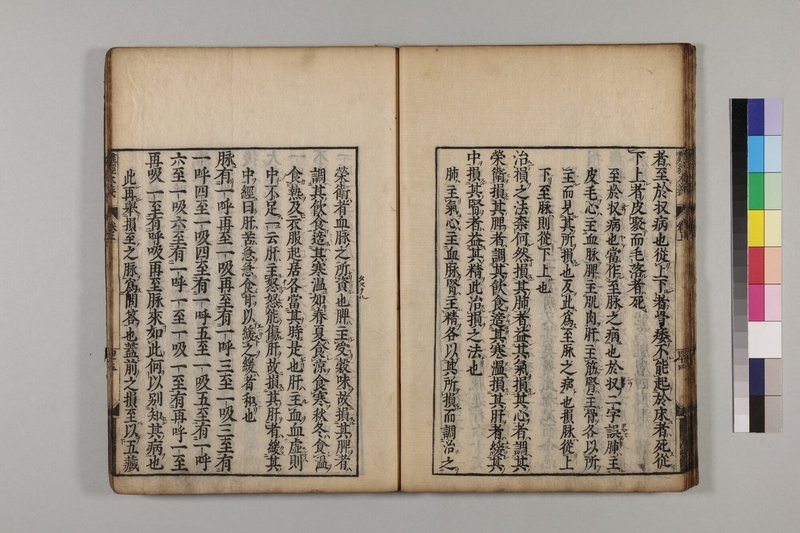 者至於収病也從上下者骨痿不能起於床者死從
下上者皮聚而毛落者死
至於収病也當作至脉之病也於収二字誤肺主
皮毛心主血脉脾主肌肉肝主筋腎主骨各以所
主而見其所損也反此爲至脉之病也損脉從上
下至脉則從下上也
治損之法柰何然損其肺者益其氣損其心者調其
榮衛損其脾者調其飲食適其寒溫損其肝者緩其
中損其腎者益其精此治損之法也
肺主氣心主血脉腎主精各以其所損而調治之
榮衛者血脉之所資也脾主受穀味故損其脾者
調其飲食適其寒溫如春夏食凉食寒秋冬食溫
食熱及衣服起居各當其時是也肝主血血虛則
中不足一云肝主怒怒能傷肝故損其肝者緩其
中經曰肝苦急急食甘以緩之緩者和也
脉有一呼再至一吸再至有一呼三至一吸三至有
一呼四至一吸四至有一呼五至一吸五至有一呼
六至一吸六至有一呼一至一吸一至有再呼一至
再吸一至有呼吸再至脉來如此何以別知其病也
此再舉損至之脉爲問答也蓋前之損至以五藏